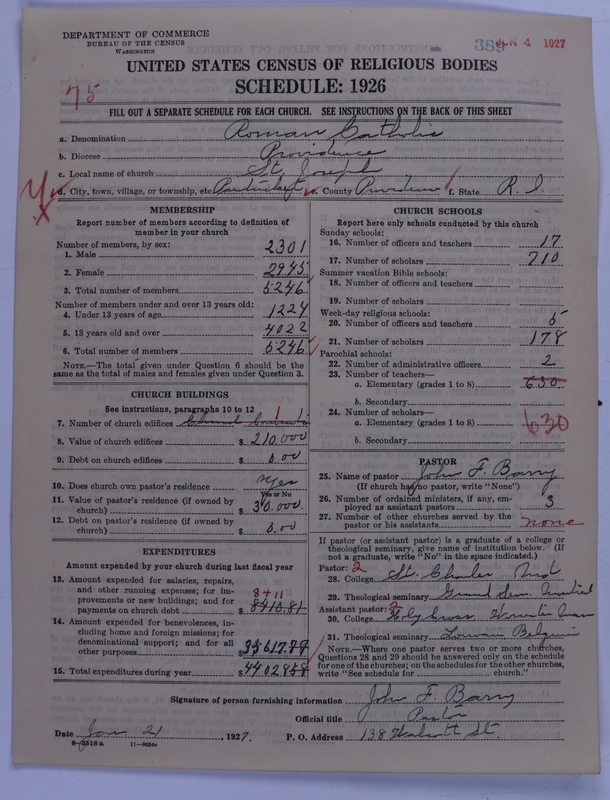 DEPARTMENT OF COMMERCE
BUREAU OF THE CENSUS
WASHINGTON
389 JUN 4 1927
UNITED STATES CENSUS OF RELIGIOUS BODIES
SCHEDULE: 1926
75
FILL OUT A SEPARATE SCHEDULE FOR EACH CHURCH. SEE INSTRUCTIONS ON THE BACK OF THIS SHEET
a. Denomination Roman Catholic
b. Diocese Providence
c. Local name of church St. Joseph
d. City, town, village, or township, etc. Pawtucket e. County Providence f. State R. I.
MEMBERSHIP
Report number of members according to definition of
member in your church
Number of members, by sex:
1. Male 2301
2. Female 2945
3. Total number of members 5246
Number of members under and over 13 years old:
4. Under 13 years of age 1224
5. 13 years old and over 4022
6. Total number of members 5246
NOTE.—The total given under Question 6 should be
same as the total of males and females given under Question 3.
CHURCH BUILDINGS
See instructions, paragraphs 10 to 12
7. Number of church edifices Church 1
8. Value of church edifices $ 210.000
9. Debt on church edifices $ 0.00
10. Does church own pastor's residence? Yes
Yes or No
11. Value of pastor's residence (if owned by
church) $ 30.000.
12. Debt on pastor's residence (if owned by
church) $ 0.00
EXPENDITURES
Amount expended by your church during last fiscal year
13. Amount expended for salaries, repairs,
and other running expenses; for im-
provements or new buildings; and for
payments on church debt $ 8410.81
8411
14. Amount expended for benevolences, in-
cluding home and foreign missions; for
denominational support; and for all
other purposes $ 35617.77
15. Total expenditures during year $ 44028.58
CHURCH SCHOOLS
Report here only schools conducted by this church
Sunday schools:
16. Number of officers and teachers 17
17. Number of scholars 710
Summer vacation Bible schools:
18. Number of officers and teachers
19. Number of scholars
Week-day religious schools:
20. Number of officers and teachers 5
21. Number of scholars 178
Parochial schools:
22. Number of administrative officers 2
23. Number of teachers—
a. Elementary (grades 1 to 8) 630
b. Secondary
24. Number of scholars—
a. Elementary (grades 1 to 8) 630
b. Secondary
PASTOR
25. Name of pastor John F. Barry
(If church has no pastor, write "None")
26. Number of ordained ministers, if any, em-
ployed as assistant pastors 3
27. Number of other churches served by the
pastor or his assistants none
If pastor (or assistant pastor) is a graduate of a college or
theological seminary, give name of institution below. (If
not a graduate, write "No" in the space indicated.)
Pastor: 2
28. College St. Charles Md
29. Theological seminary Grand Sem Montreal
Assistant pastor: 2
30. College Holy Cross Worcester Mass
31. Theological seminary Louvain Belgium
NOTE.—Where one pastor serves two or more churches,
Questions 28 and 29 should be answered only on the schedule
for one of the churches; on the schedules for the other churches,
write "See schedule for church."
Signature of person furnishing information John F. Barry
Official title Pastor
Date Jan 21, 1927. P. O. Address 138 Walcott St.
8-5518a 11-9354a